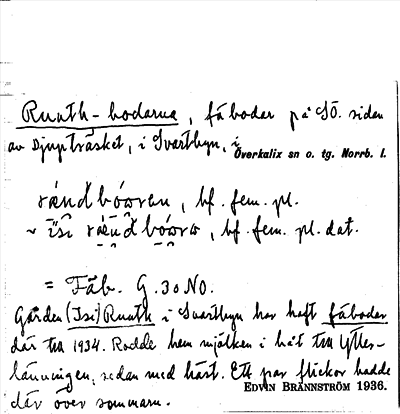 Ruuth-bodarna, fäbodar på SÖ. sidan
av Djupträsket, i Svartbyn, i
Överkalix sn o. tg. Norrb. l.
rǽndbówren, bf. fem. pl.
~ isi rǽndbówro, bf. fem. pl. dat.
= Fäb. G. 30 NO.
Gården (Isi) Ruuth i Svartbyn har haft fäbodar
där till 1934. Rodde hem mjölken i båt till Ytter-
länningen, sedan med häst. Ett par flickor hadde
EDVIN BRÄNNSTRÖM 1936.
där över sommarn.